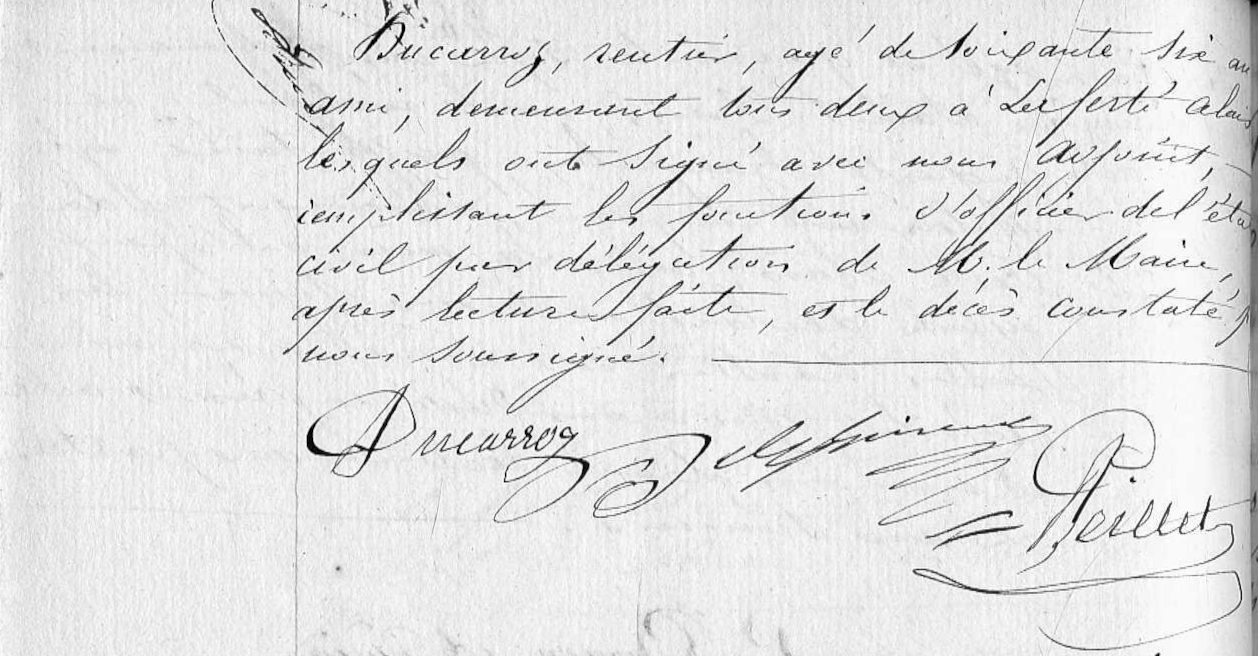 Ducarroz, rentier, agé de soixante six an
ami, demeurant tous deux à La ferté alais
lesquels ont signé avec nous adjoint,
remplissant les fonctions d'officier de l'éta
civil par délégation de M. le Maire,
après lecture faite, et le décès constaté p
nous soussigné.
Ducarroz
Peillet